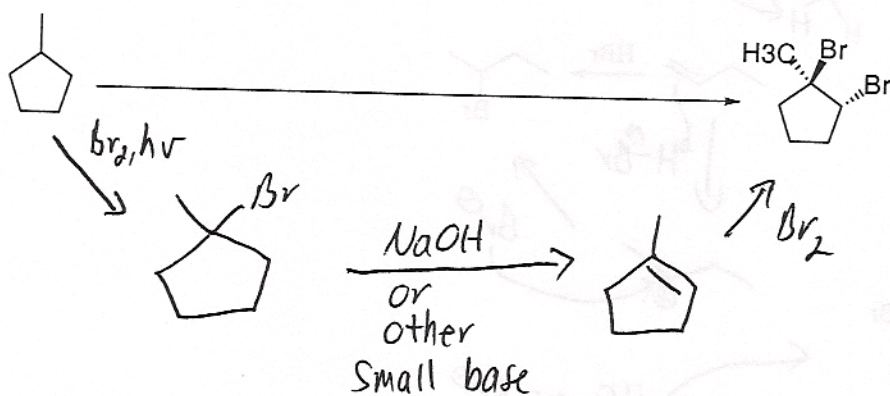 H3C Br
Br
Br2, hv
Br
NaOH
or
other
small base
Br2